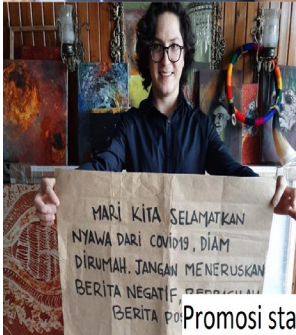 MARI KITA SELAMATKAN
NYAWA DARI COVID19, DIAM
DIRUMAH. JANGAN MENERUSKAN
BERITA NEGATIF,
BERITA
Promosi sta